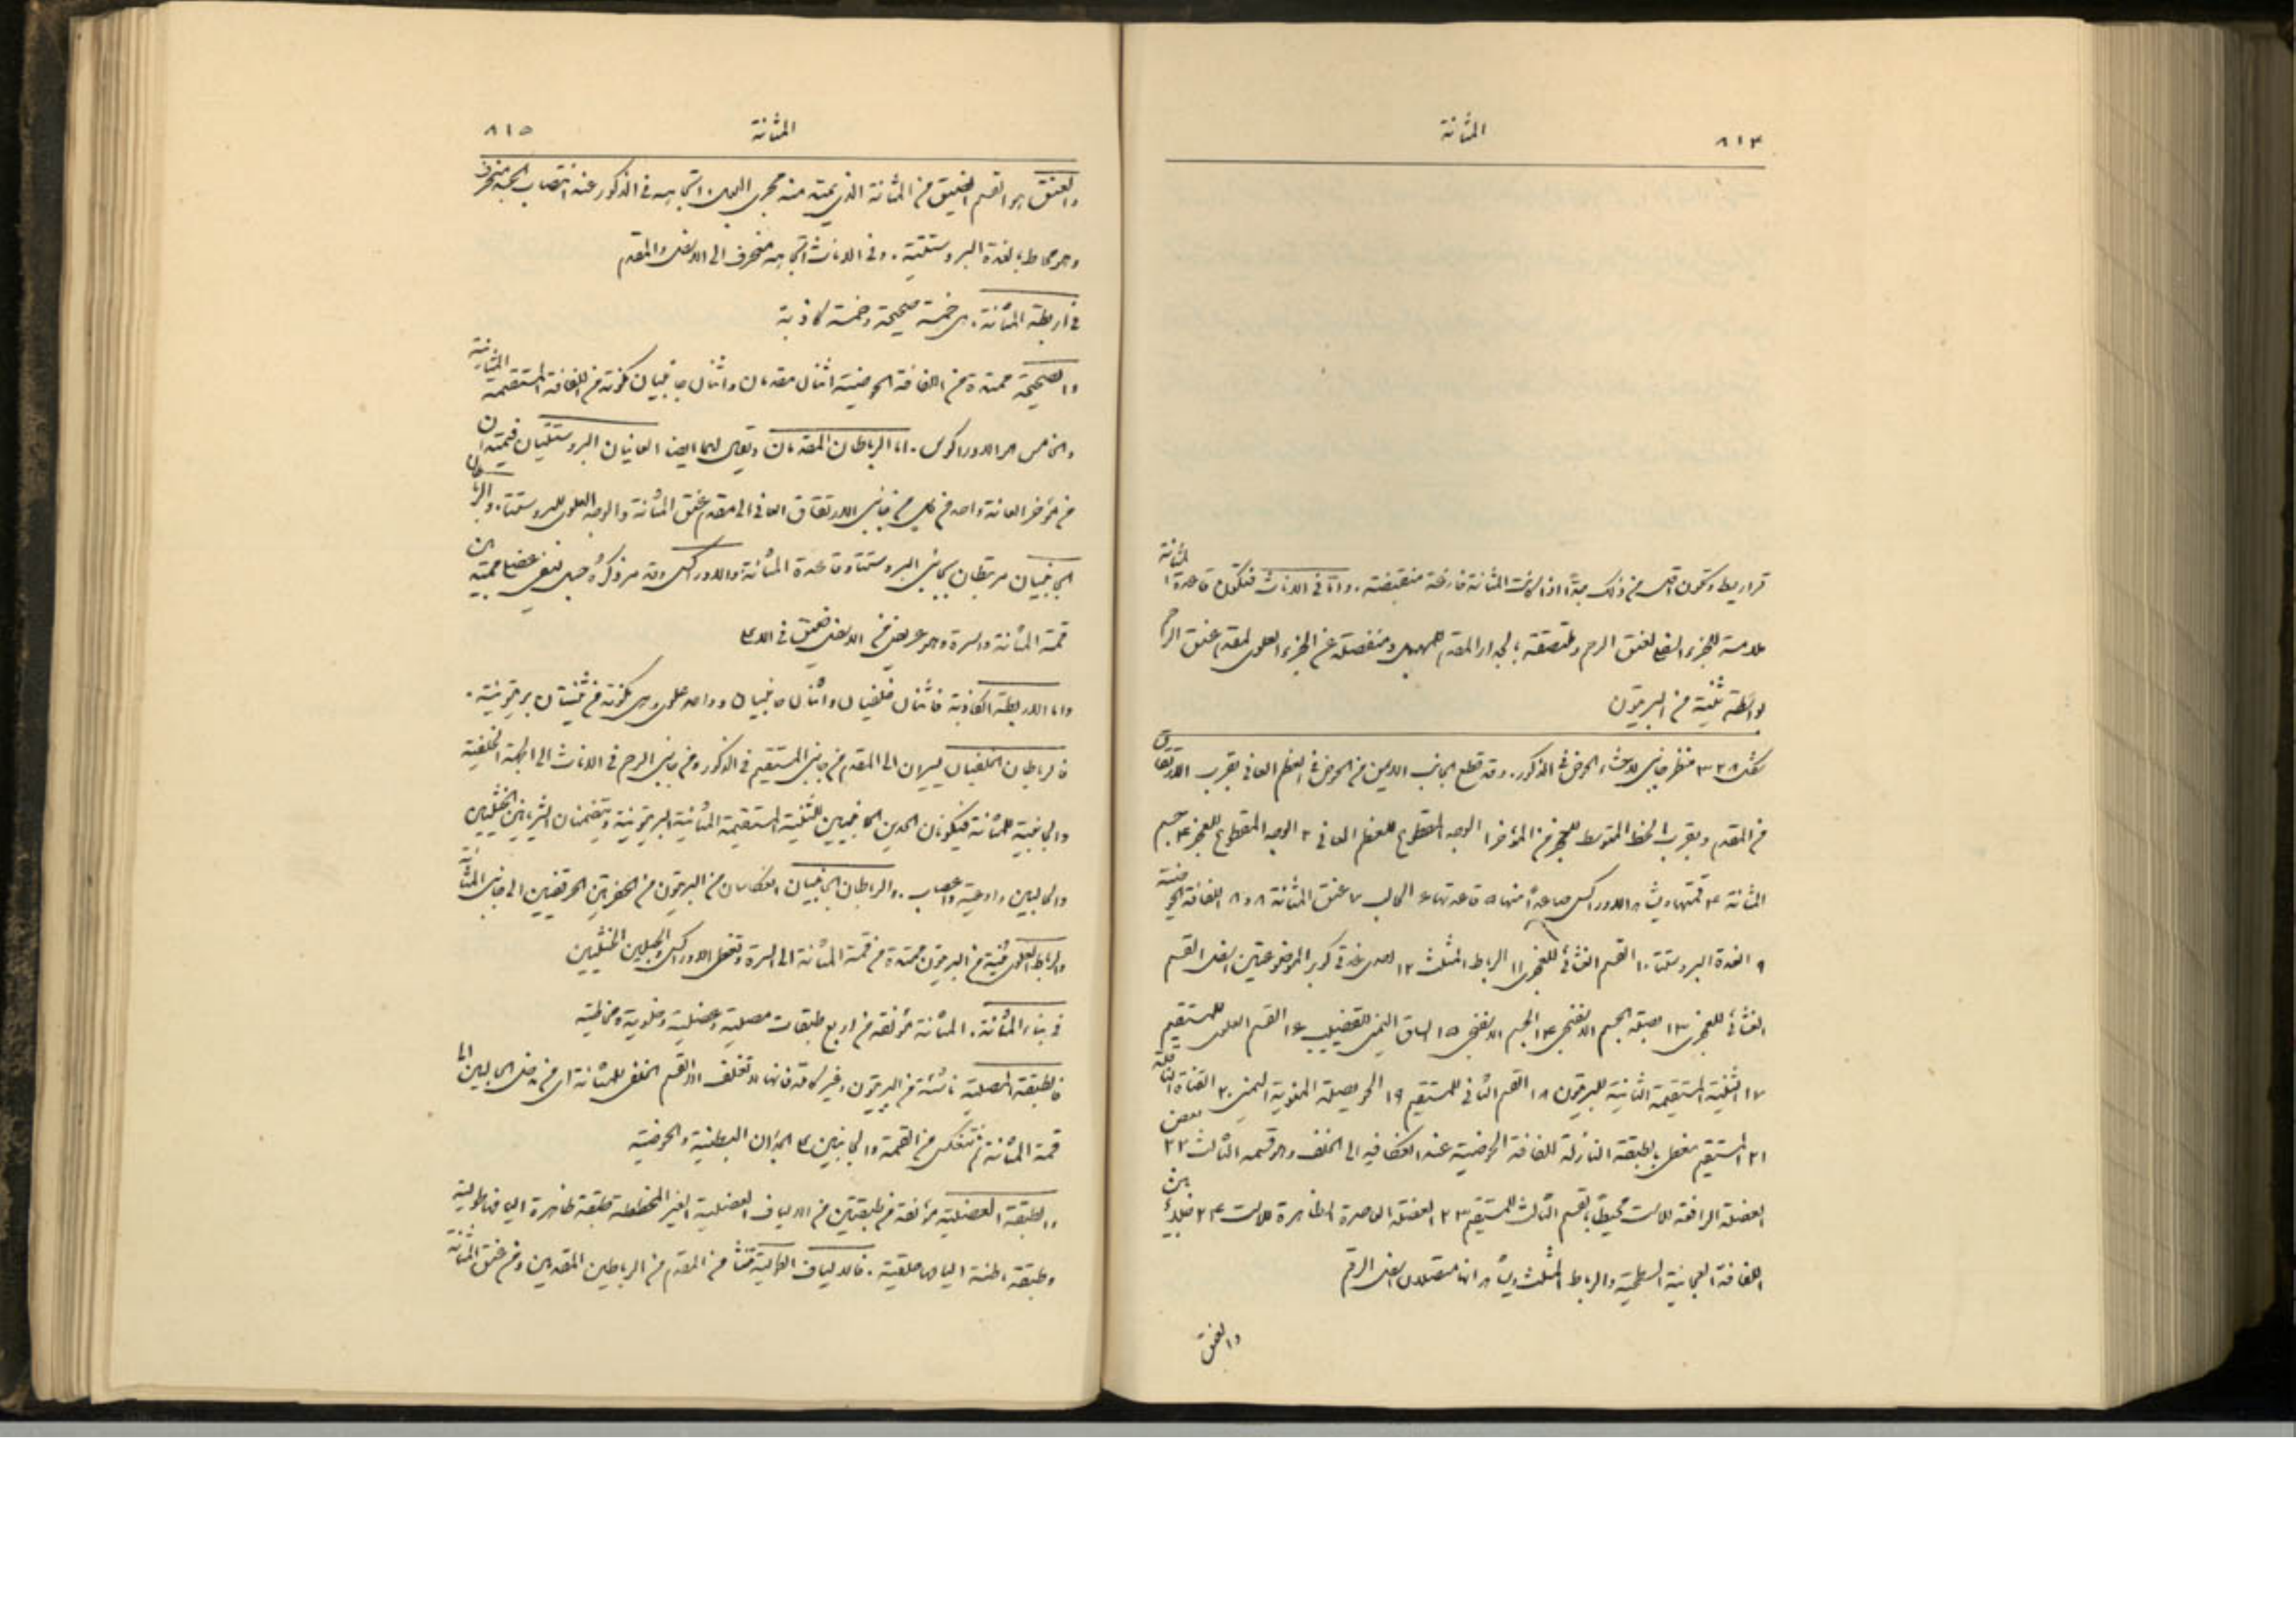 ٨١٤ المثانة
قراريط وتكون اقل من ذلك جدًّا اذا كانت المثانة فارغة منقبضة. واما في الاناث فتكون قاعدة المثانة
ملامسة للجزء السفلي لعنق الرحم وملتصقة بالجدار المقدم للمهبل ومنفصلة عن الجزء العلوي لمقدم عنق الرحم
بواسطة ثنية من البريتون
شكل ٣٢٨ منظر جانبي لاحشاء الحوض في الذكور. وقد قطع الجانب الايمن من الحوض في العظم العاني بقرب الارتفاق
من المقدم وبقرب الخط المتوسط للعجز من المؤخر ١ الوجه المقطوع للعظم العاني ٢ الوجه المقطوع للعجز ٣ جسم
المثانة ٤ قمتها ويشاهد الاوراكس صاعدًا منها ٥ قاعدتها ٦ الحالب ٧ عنق المثانة ٨ و٨ اللفافة الحوضية
٩ الغدة البروستتا ١٠ القسم الغشائي للمجرى ١١ الرباط المثلث ١٢ احدى غدتي كوبر الموضوعتين اسفل القسم
الغشائي للمجرى ١٣ بصلة الجسم الاسفنجي ١٤ الجسم الاسفنجي ١٥ الساق اليمنى للقضيب ١٦ القسم العلوي للمستقيم
١٧ الثنية المستقيمة المثانية للبريتون ١٨ القسم الثاني للمستقيم ١٩ الحويصلة المنوية اليمنى ٢٠ القناة الناقلة
٢١ المستقيم مغطى بالطبقة النازلة للفافة الحوضية عند انعكافه الى الخلف وهو قسمه الثالث ٢٢ بعض
العضلة الرافعة للاست محيطًا بالقسم الثالث للمستقيم ٢٣ العضلة العاصرة الظاهرة للاست ٢٤
اللفافة العجانية السطحية والرباط المثلث ويشاهد انها متصلان اسفل الرقم
والعنق
المثانة ٨١٥
والعنق هو القسم الضيق من المثانة الذي يمتد منه مجرى البول. اتجاهه في الذكور عند انتصاب الجثة منحرف
وهو محاط بالغدة البروستتية. وفي الاناث اتجاهه منحرف الى الاسفل والمقدم
في اربطة المثانة. هي خمسة صحيحة وخمسة كاذبة
والصحيحة ممتدة من اللفافة الحوضية اثنان مقدمان واثنان جانبيان مكونة من اللفافة المستقيمية المثانية
والخامس هو الاوراكوس. اما الرباطان المقدمان ويقال لهما ايضا العانيان البروستتيان فيمتدان
من مؤخر العانة واحد من كل من جانبي الارتفاق العاني الى مقدم عنق المثانة والوجه العلوي للبروستتا. والرباطان
الجانبيان مرتبطان بجانبي البروستتا وقاعدة المثانة. والاوراكس وقد مر ذكره حبل ليفي عضلي ممتد بين
قمة المثانة والسرة وهو عريض من الاسفل ضيق في الاعلى
واما الاربطة الكاذبة فاثنان خلفيان واثنان جانبيان وواحد علوي وهي مكونة من ثنيات بريتونية.
فالرباطان الخلفيان يسيران الى المقدم من جانبي المستقيم في الذكور ومن جانبي الرحم في الاناث الى الجهة الخلفية
والجانبية للمثانة فيكونان الحدين الجانبيين للثنية المستقيمة المثانية البريتونية ويتضمنان الشريانين الخثليين
والحالبين واوعية واعصاب. والرباطان الجانبيان انعكاسان من البريتون من الحفرتين الحرقفيتين الى جانبي المثانة
والرباط العلوي ثنية من البريتون ممتدة من قمة المثانة الى السرة وتغطي الاوراكس والحبلين الخثليين
في بناء المثانة. المثانة مؤلفة من اربع طبقات مصلية وعضلية وخلوية ومخاطية
فالطبقة المصلية ناشئة من البريتون وغير كاملة فانها لا تغلف الا القسم الخلفي للمثانة اي من مدخل الحالبين الى
قمة المثانة ثم تنعكس من القمة والجانبين على الجدران البطنية والحوضية
والطبقة العضلية مؤلفة من طبقتين من الالياف العضلية الغير المخططة طبقة ظاهرة اليافها طولية
وطبقة باطنة اليافها حلقية. فالالياف الطولية تنشأ من المقدم من الرباطين المقدمين ومن عنق المثانة